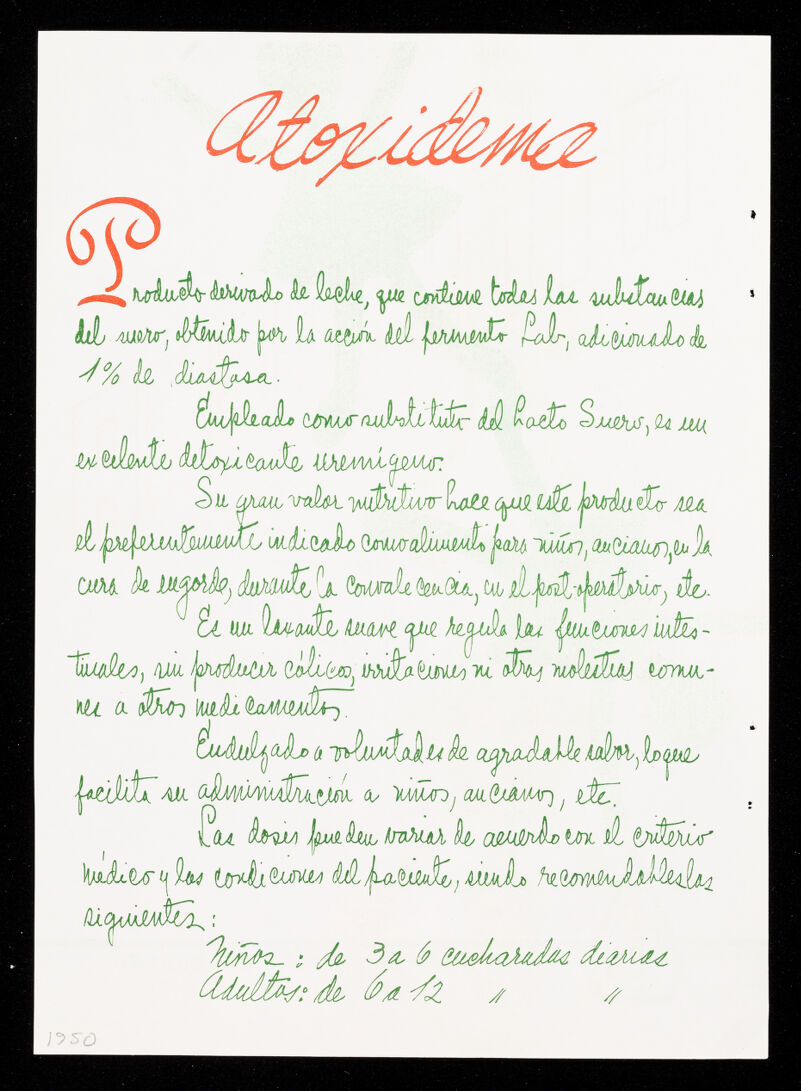 Atoxidema
Producto derivado de leche, que contiene todas las substancias
del suero, obtenido por la acción del fermento Lab, adicionado de
1% de diastasa.
Empleado como substituto del Lacto Suero, es un
excelente detoxicante uremígeno.
Su gran valor nutritivo hace que este producto sea
el preferentemente indicado como alimento para niños, ancianos, en la
cura de engorde, durante la convalecencia, en el post-operatorio, etc.
Es un laxante suave que regula las funciones intes-
tinales, sin producir cólicos, irritaciones ni otras molestias comu-
nes a otros medicamentos.
Endulzado a voluntad es de agradable sabor, lo que
facilita su administración a niños, ancianos, etc.
Las dosis pueden variar de acuerdo con el criterio
médico y las condiciones del paciente, siendo recomendables las
siguientes:
Niños: de 3 a 6 cucharadas diarias
Adultos: de 6 a 12 " "
1950